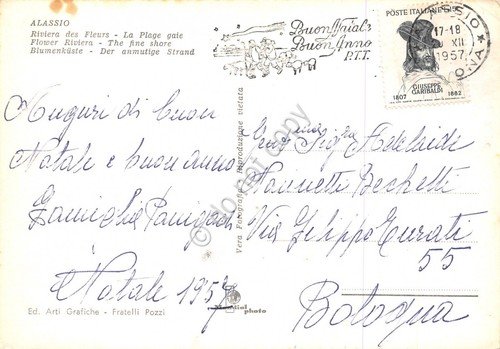 ALASSIO
Riviera des Fleurs - La Plage gaie
Flower Riviera - The fine shore
Blumenküste - Der anmutige Strand
Buon Natale
Buon Anno
P.T.T.
POSTE ITALIANE L. 15
GIUSEPPE
GARIBALDI
1807 1882
ALASSIO
17-18
XII
1957
Auguri di buon
Natale e buon anno
Famiglia
Natale 1957
Vera Fotografia riproduzione vietata
Gent Sig Adelaidi
Nannetti Bechetti
Via Filippo Turati
55
Bologna
Ed. Arti Grafiche - Fratelli Pozzi
photo
do not copy